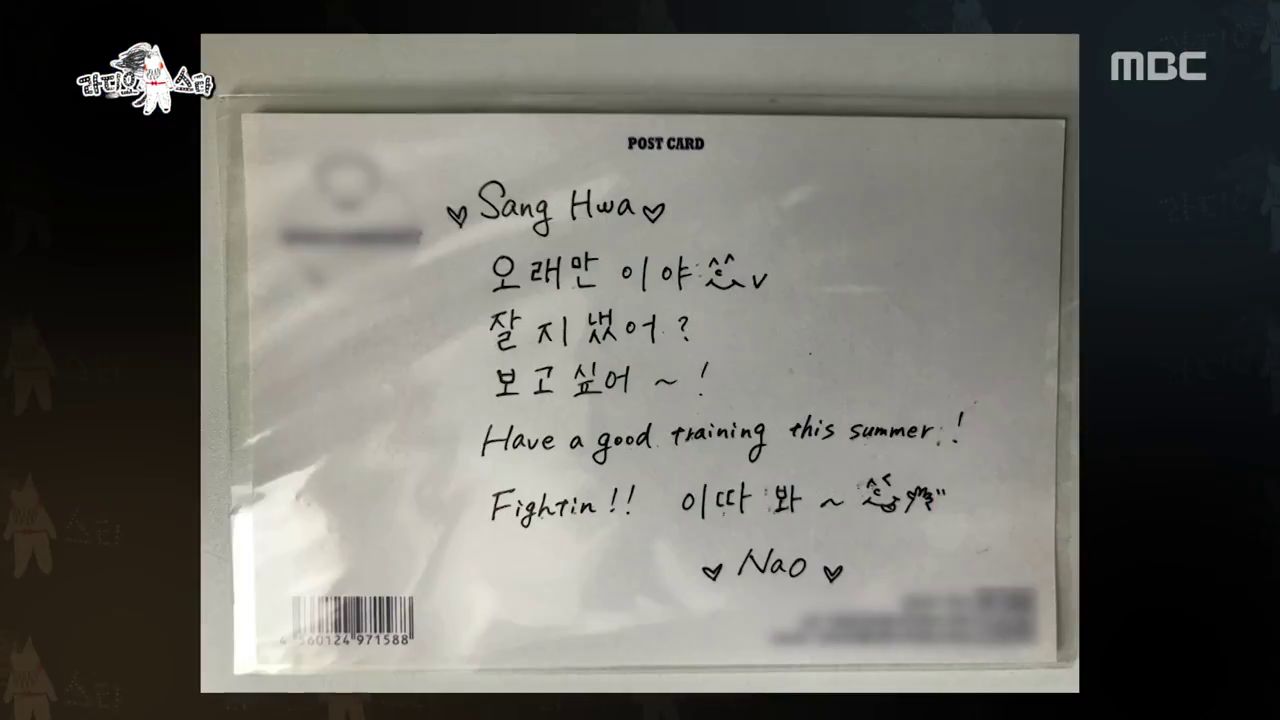 라디오스타
MBC
POST CARD
♡ Sang Hwa ♡
오래만 이야
잘 지냈어?
보고 싶어 ~ !
Have a good training this summer !
Fightin !! 이따 봐 ~
♡ Nao ♡
4 560124 971588